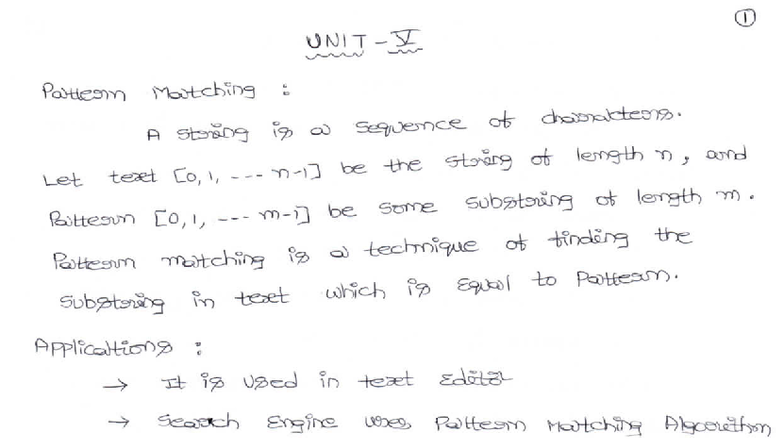 1
UNIT - V
Pattern Matching :
A string is a sequence of charakters.
Let text [0, 1, --- n-1] be the string of length n, and
Pattern [0, 1, --- m-1] be some substring of length m.
Pattern matching is a technique of finding the
substring in text which is Equal to Pattern.
Applications :
→ It is Used in text Editor
→ Search Engine uses Pattern Matching Algorithm